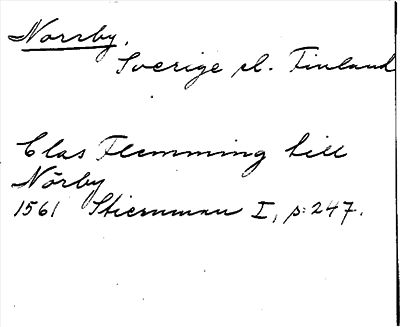 Norrby.
Sverige el. Finland
Clas Flemming till
Nörby
1561 Stiernman I, s: 247.